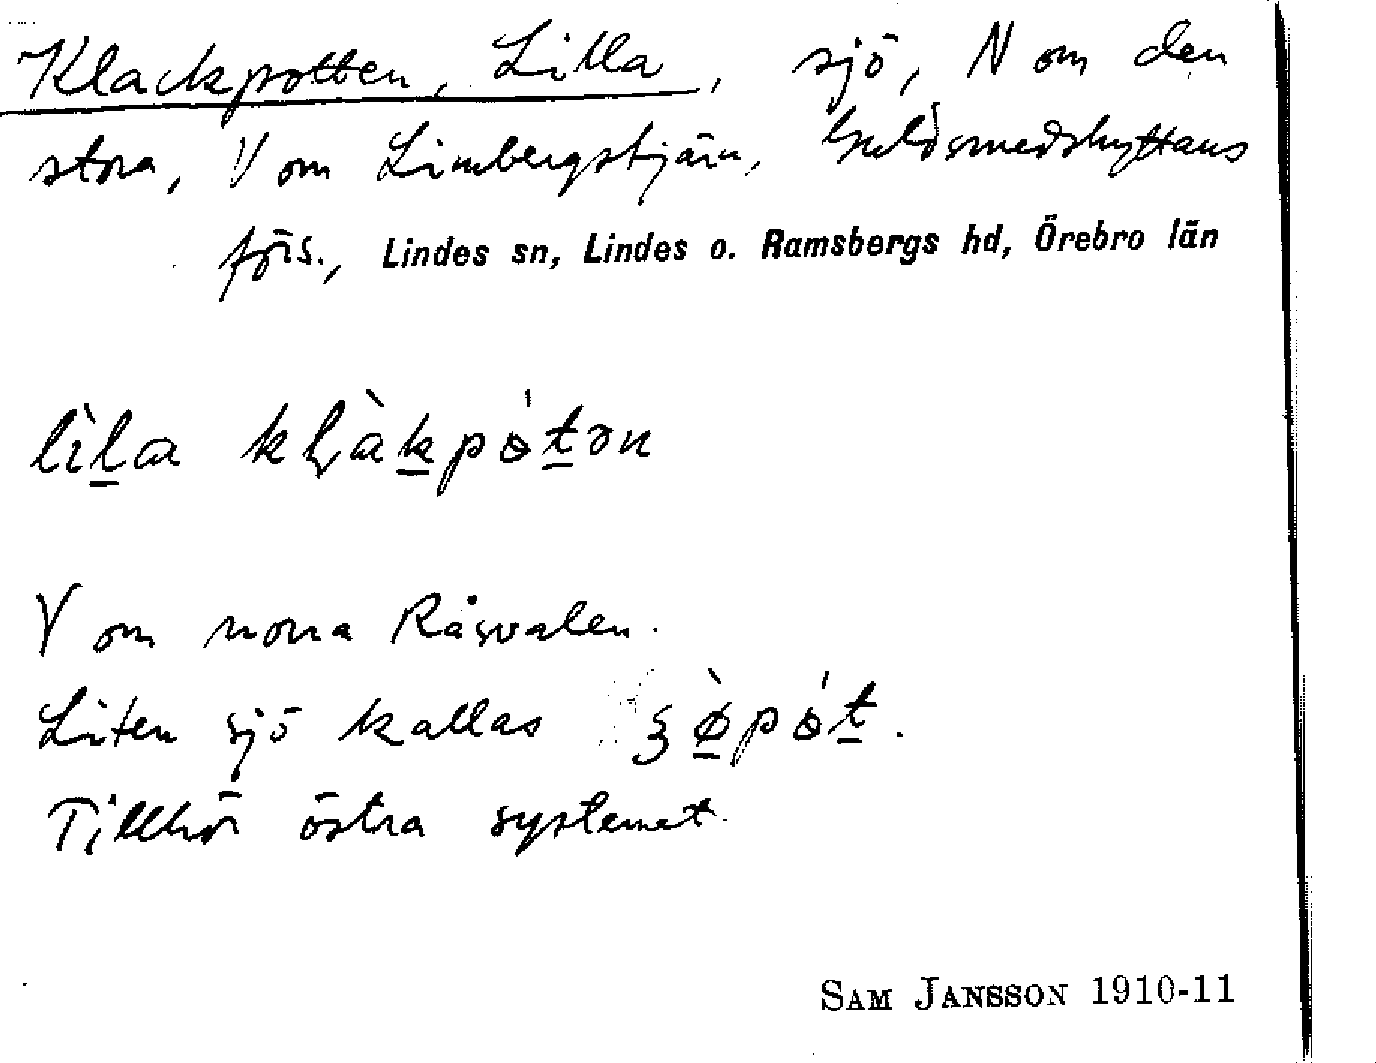 Klackpotten, Lilla, sjö, N om den
stora, V om Limbergstjärn, Guldsmedshyttans
förs., Lindes sn, Lindes o. Ramsbergs hd, Örebro län
lìl̲a kḷàk̲pǿt̲ən
V om norra Råsvalen.
Liten sjö kallas ʒø̲̀pǿt̲.
Tillhör östra systemet.
SAM JANSSON 1910-11